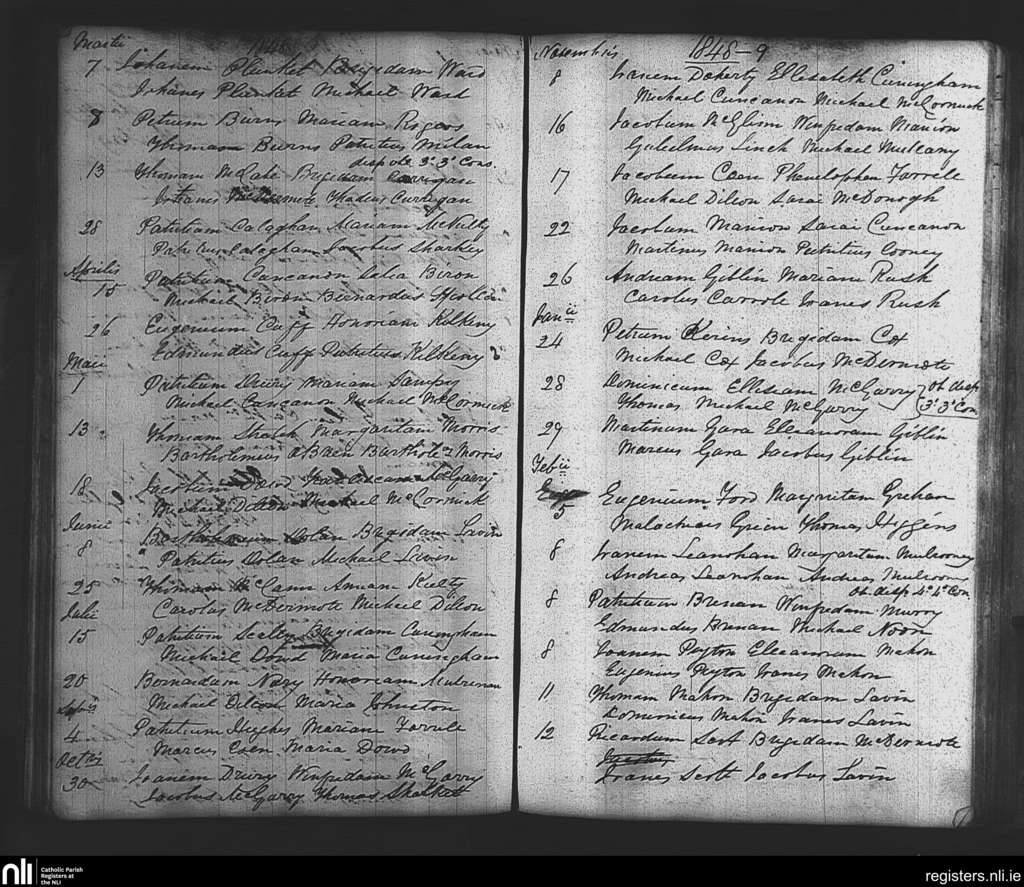 Martii 1848
7 Johanem Plunket Brigidam Ward
Johanes Plunket Michael Ward
8 Petrum Burns Mariam Rogers
Thomas Burns Patritius Milan
disp ob 3. 3 Cons.
13 Thomam McCabe Brigidam
Thadeus Curregan
28 Patritium Calaghan Mariam McNilty
Patritius Calaghan Jacobus Sharkey
Aprilis
15 Patritium Cuncanon Salia Biron
Michael Biron Bernardus
26 Eugenium Cuff Honoriam Kilkeny
Edmundus Cuff Patritius Kilkeny
Maii
7 Patritium Drury Mariam
Michael Cancanon Michael McCormick
13 Thomam Margaritam Morris
Bartholimius Morris
18 Dowd McGarry
Michael Dillon Michael McCormick
Junii
8 Nolan Brigidam Lavin
Patritius Dolan Michael Lavin
25 Thomam McCann Annam Kielty
Carolus McDermote Michael Dilon
Julii
15 Patritium Brigidam Cuningham
Michael Dowd Maria Cuningham
20 Bernardam Nary Honoriam Mulrenan
Michael Dilon Maria Johnston
4 Patritium Hughes Mariam Farrele
Marcus Coen Maria Dowd
Octris
30 Joanem Drury Winfredam McGarry
Jacobus McGarry Thomas
Novembris 1848-9
8 Ioanem Doherty Ellisabeth Cuningham
Michael Cuncanon Michael McCormick
16 Jacobum McGlinn Winfredam Manion
Gulielmus Linch Michael Mulleany
17 Jacobum Coen Phenelophen Farrele
Michael Dilon Sarai McDonogh
22 Jacobum Manion Sarai Cuncanon
Martinus Manion Patritius Cooney
26 Andream Giblin Mariam Rush
Carolus Carrole Ioanes Rush
Janii
24 Petrum Kerins Brigidam Cox
Michael Cox Jacobus McDermote
28 Dominicum Elleseam McGarry ob disp
Thomas Michael McGarry 3. 3 Con
29 Martinum Gara Elleanoram Giblin
Marcus Gara Jacobus Giblin
Febii
5 Eugenium Ford Margritam Greham
Malachias Green Thomas Higgens
8 Ioanem Leanohan Margaritam Mulrooney
Andreas Leanohan Andreas Mulroony
ob disp 4. 4 Con.
8 Patritium Brenan Winfredam Murry
Edmundus Brenan Michael Noon
8 Joanem Peyton Elleanorum Mahon
Eugenius Peyton Ioanes Mahon
11 Thomam Mahon Brigidam Lavin
Domininicus Mahon Ioanes Lavin
12 Ricardum Brigidam McDermote
Ioanes Scott Jacobus Lavin
nli
Catholic Parish
Registers at
the NLI
registers.nli.ie